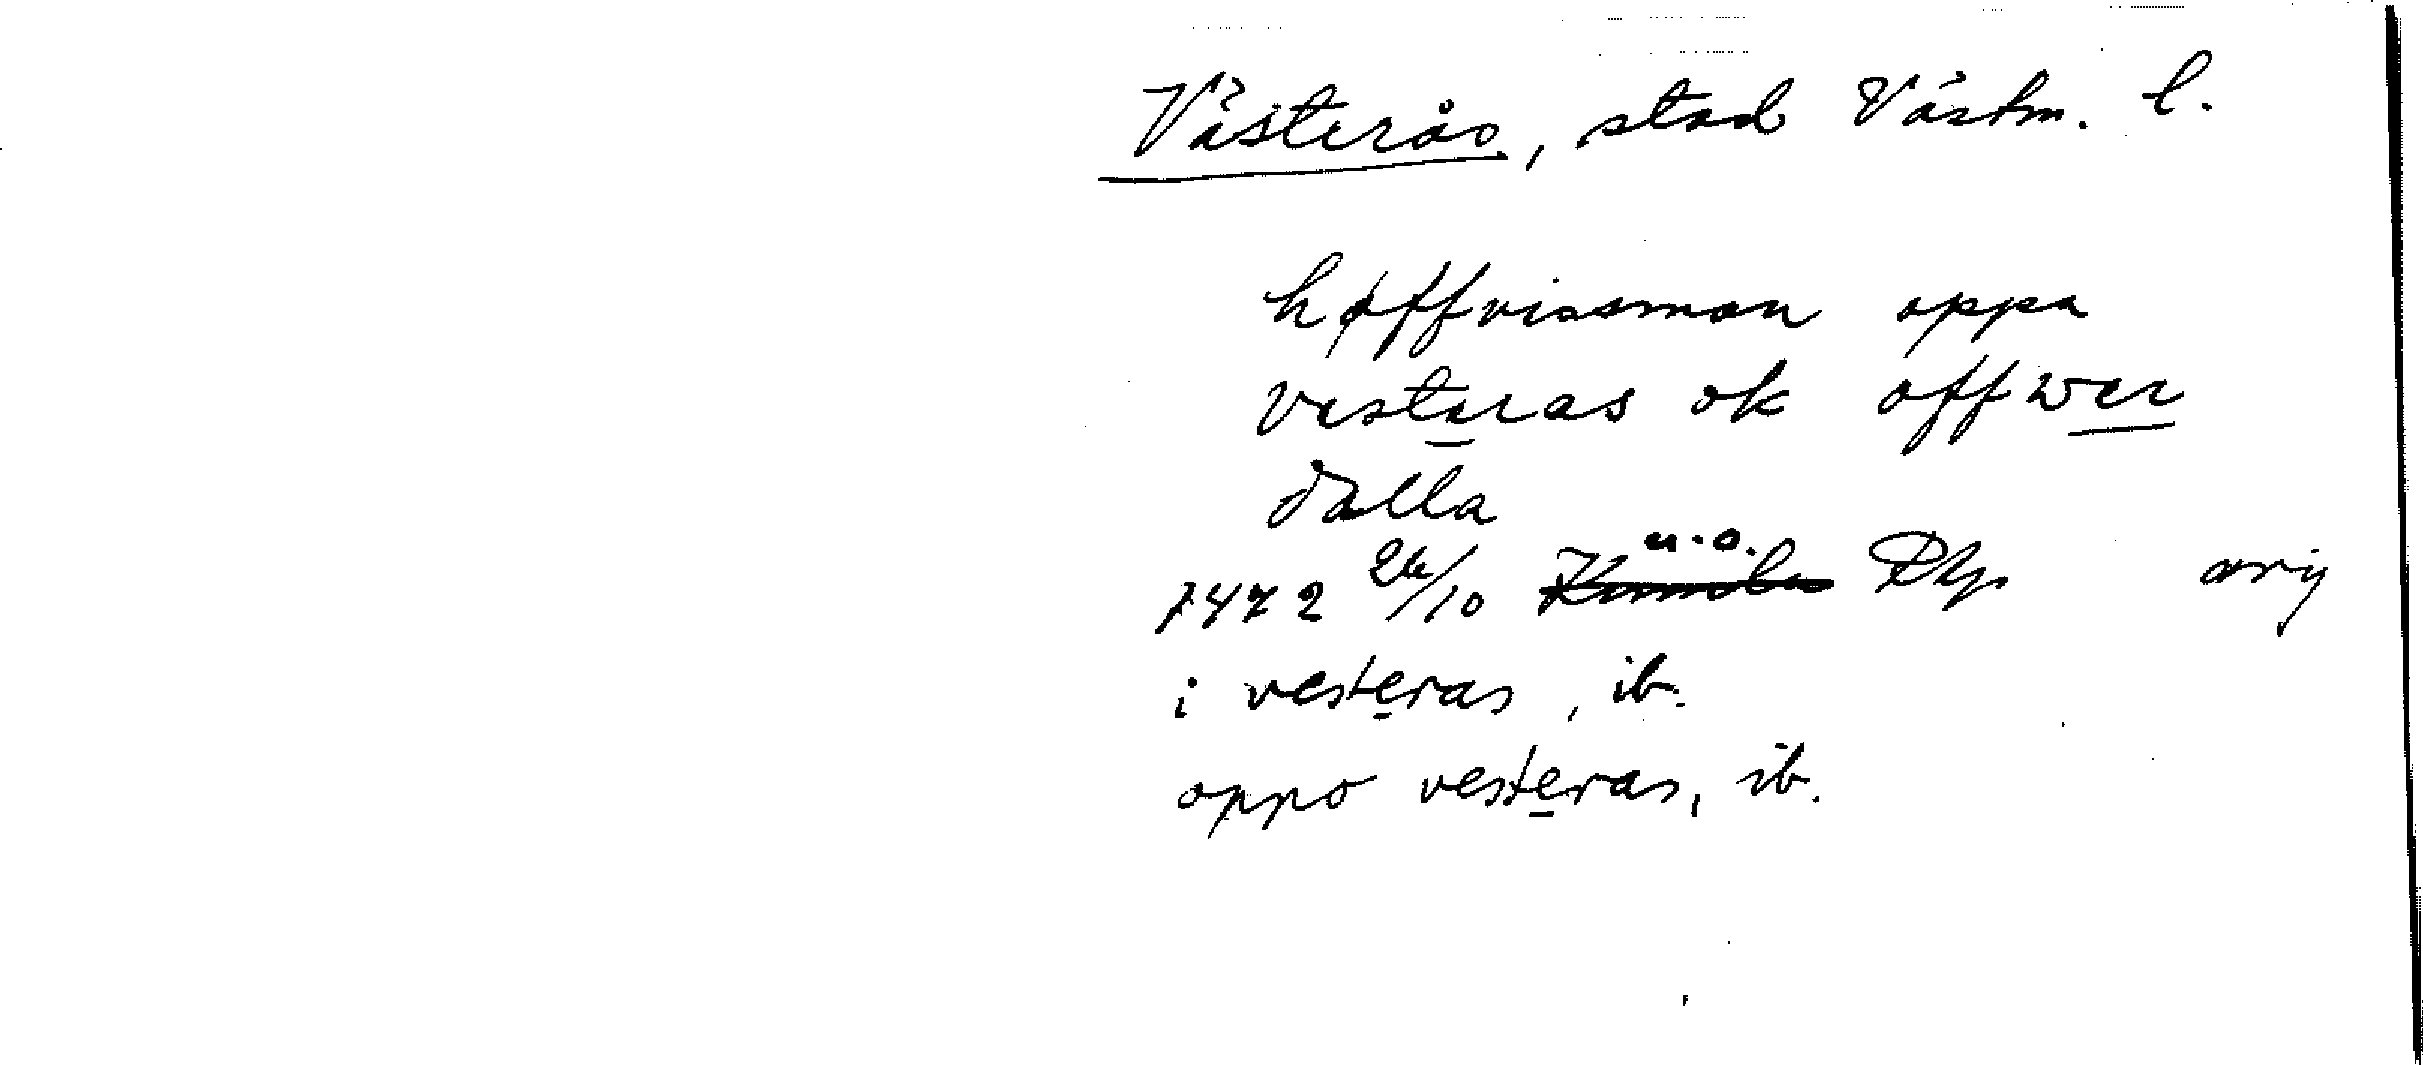 Västerås, stad Västm. l.
høffvisman oppa
vesteras ok offwer
dalla
1472 26/10 u.o. Rkp orig
i vesteras, ib.
oppo vesteras, ib.